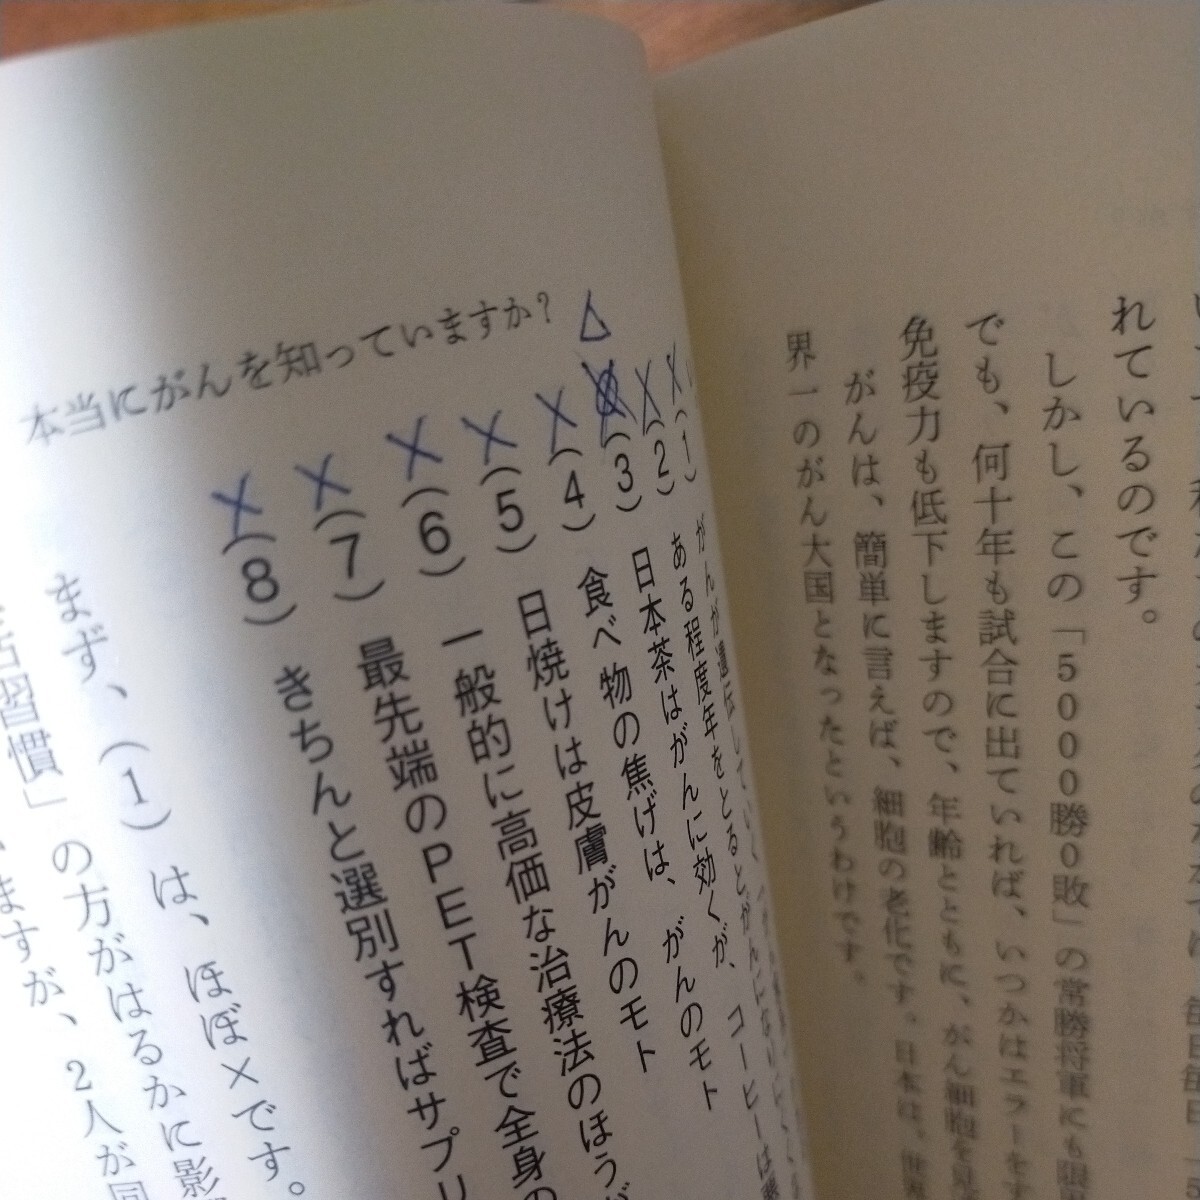 れているのです。
しかし、この「5000勝0敗」の常勝将軍にも限
でも、何十年も試合に出ていれば、いつかはエラーをす
免疫力も低下しますので、年齢とともに、がん細胞を見
がんは、簡単に言えば、細胞の老化です。日本は、世
界一のがん大国となったというわけです。
本当にがんを知っていますか?
△
×(1) がんが遺伝していく
×(2) ある程度年をとるとがんになりにくく
(3) 日本茶はがんに効くが、コーヒーは
×(4) 食べ物の焦げは、がんのモト
×(5) 日焼けは皮膚がんのモト
×(6) 一般的に高価な治療法のほうが
×(7) 最先端のPET検査で全身の
×(8) きちんと選別すればサプリ
まず、(1)は、ほぼ×です。
習慣」の方がはるかに影
ますが、2人が同